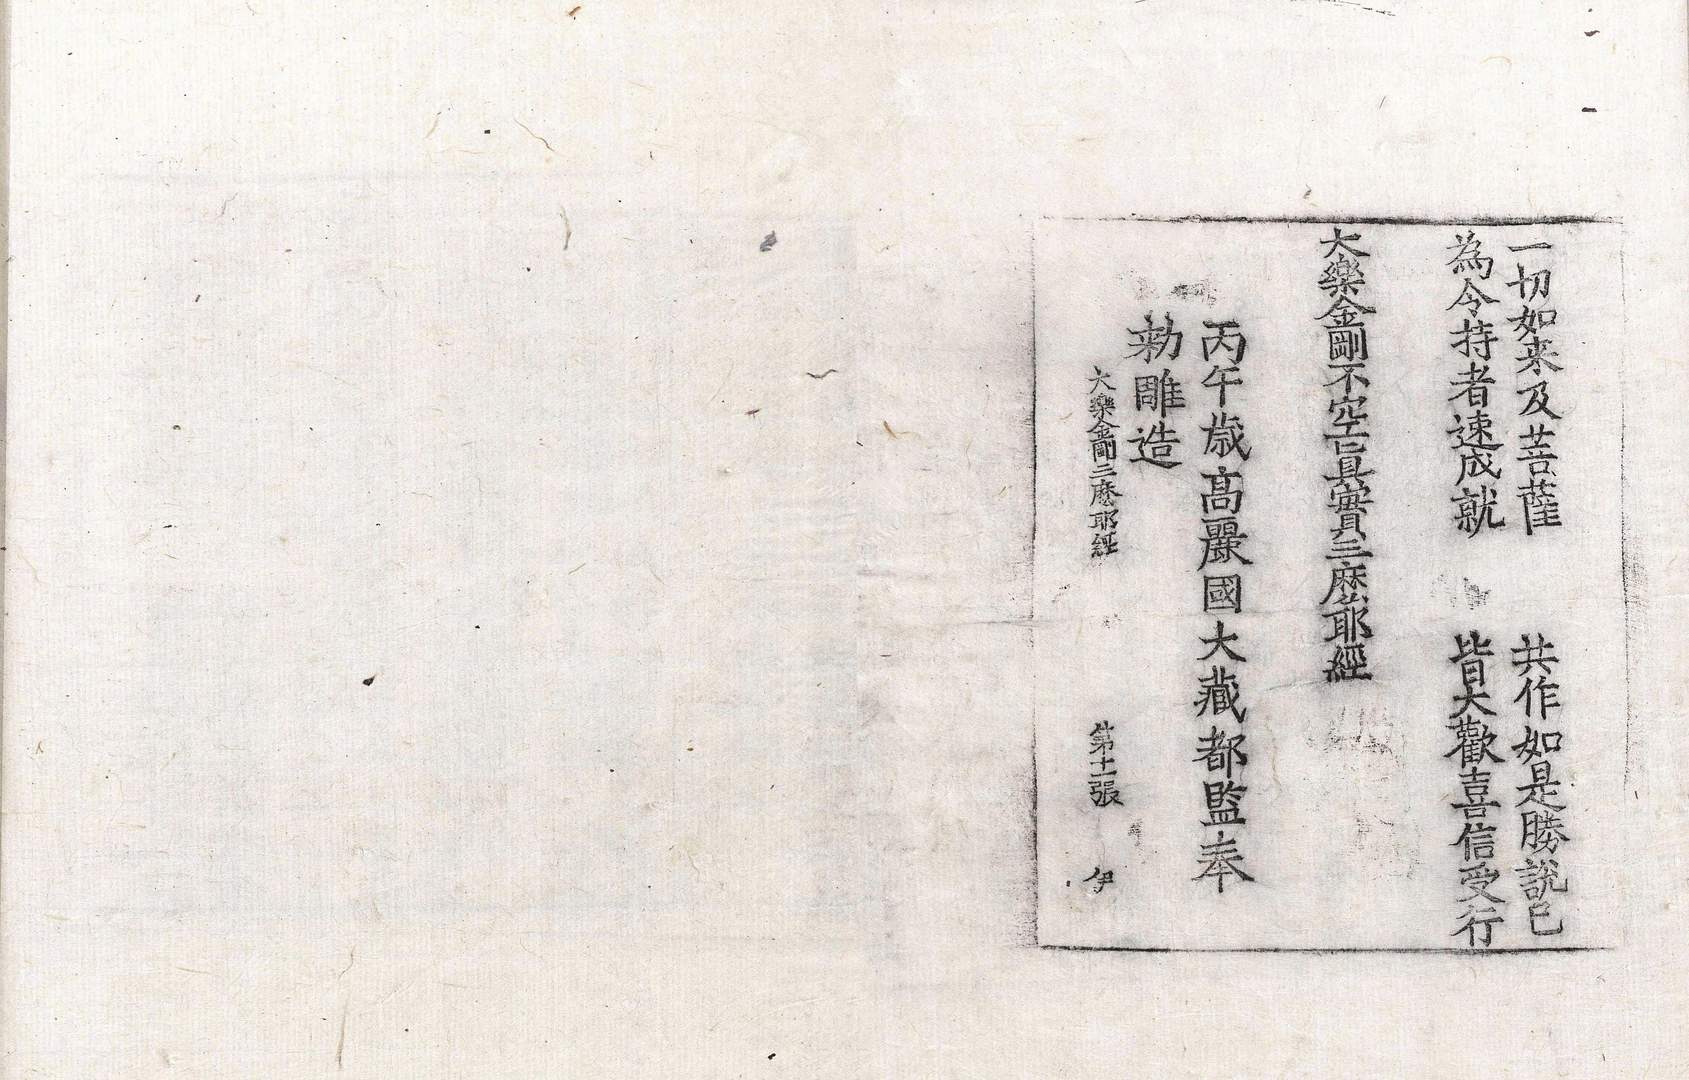 一切如来及菩薩　共作如是勝說已
為令持者速成就　皆大歡喜信受行
大樂金剛不空真實三麽耶經
丙午歲高麗國大藏都監奉
勑雕造
大樂金剛三麽耶經　第十一張　伊